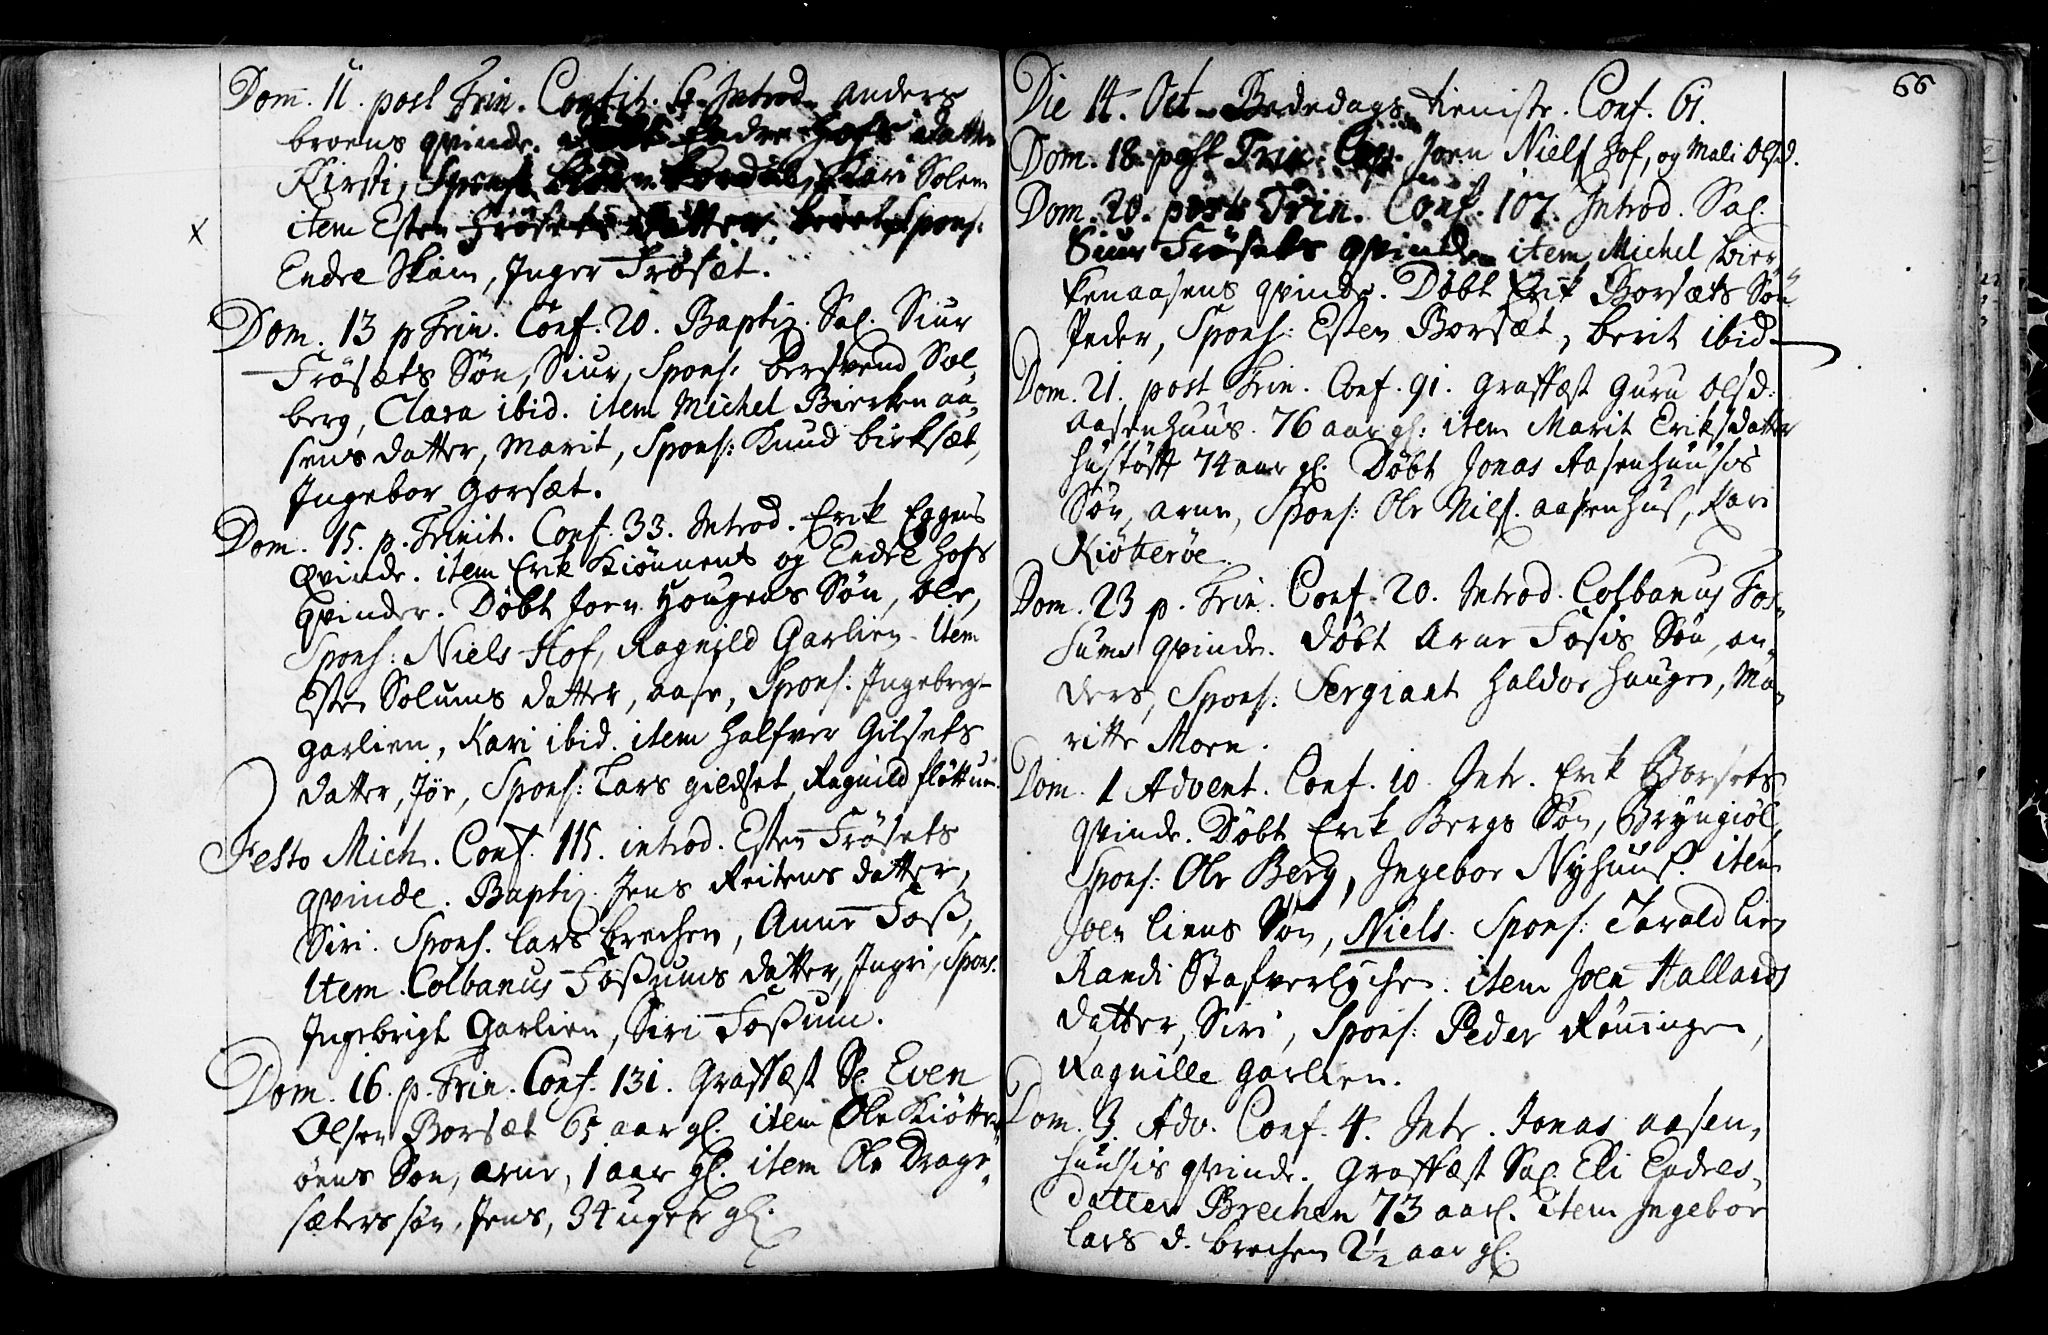 Dom. 11. post Trin. Confit. 6. Introd. Anders
broens qvinde. Endre Hofs datter
Kirsti, Kari Solem
X
item Esten Frösets datter, berit, Spons:
Endre Skam, Inger Frösæt.
Dom. 13 p Trin. Conf. 20. Baptiz. Sal. Siur
Frösæts Søn, Siur, Spons: berswend Sol,
berg, Clara ibid. item Michel Bierken aa,
sens datter, Marit, Spons: Knud birksæt,
Ingebor Gorsæt.
Dom. 15. p. Trinit. Conf. 33. Introd. Erik Eggens
Qvinde. item Erik Kiönnens og Endre Hofs
qvinder. Döbt Joen Hougens Søn, Ole,
Spons: Niels Hof, Ragnild Garlien. item
Esten Solums datter, aase, Spons: Ingebrigt
garlien, Kari ibid. item Halfver Gilsets
datter, Jör, Spons: Lars gildset, Ragnild flöttum.
Festo Mich. Conf. 115. introd. Esten Frösets
qvinde. Baptiz. Jens Reitens datter,
Siri. Spons. Lars brechen, Anne Foss,
Item Colbanus Fossums datter, Ingri, Spons.
Ingebrigt Garlien, Siri Fossum.
Dom. 16. p. Trin. Conf. 131. Graffæst Sl. Even
Olsen Borsæt 65 aar gl. item Ole Kiötte,
öens Søn, arne, 1 aar gl. item Ole Drage,
sæters søn, Jens, 34 uger gl.
66
Die 14. Oct. Bededags tieniste. Conf. 61.
Dom. 18. post Trin. Joen Niels Hof, og Mali Olsd.
Dom. 20. post Trin. Conf. 107. Introd. Sal.
Siur Frösets qvinde item Michel bier
kenaasens qvinde. Döbt Erik Borsæts Søn
Peder, Spons: Esten Borsæt, berit ibid
Dom. 21. post Trin. Conf. 91. graffæst Guru Olsd:
aasenhuus. 76 aar gl: item Marit Eriksdatter
Hustöft 74 aar gl. Döbt Jonas Aasenhuuses
Søn, arne, Spons: Ole Nils. aasenhus, Kari
Kiötteröe.
Dom. 23 p. Trin. Conf. 20. Introd. Colbanus Fos,
sums qvinde. döbt Arne Fosis Søn, an,
ders, Spons: Sergiant Haldor Haugen, Ma,
ritte Moen.
Dom. 1 Advent. Conf. 10. Intr. Erik Borsets
qvinde. Döbt Erik Bergs Søn, Bryngiöl,
Spons: Ole Berg, Ingebor Nyhuus. item
Joen Liens Søn, Niels. Spons: Tarald Lien
Randi Stafverlychen. item Joen Kallands
datter, Siri, Spons: Peder Rönningen,
Ragnille Garlien.
Dom. 3. Adv. Conf. 4. Intr. Jonas aasen,
huusis qvinde. Graffæst Sal. Eli Endres,
datter Brechen 73 aarl. item Ingebor
Lars d. brechen 2½ aar gl.